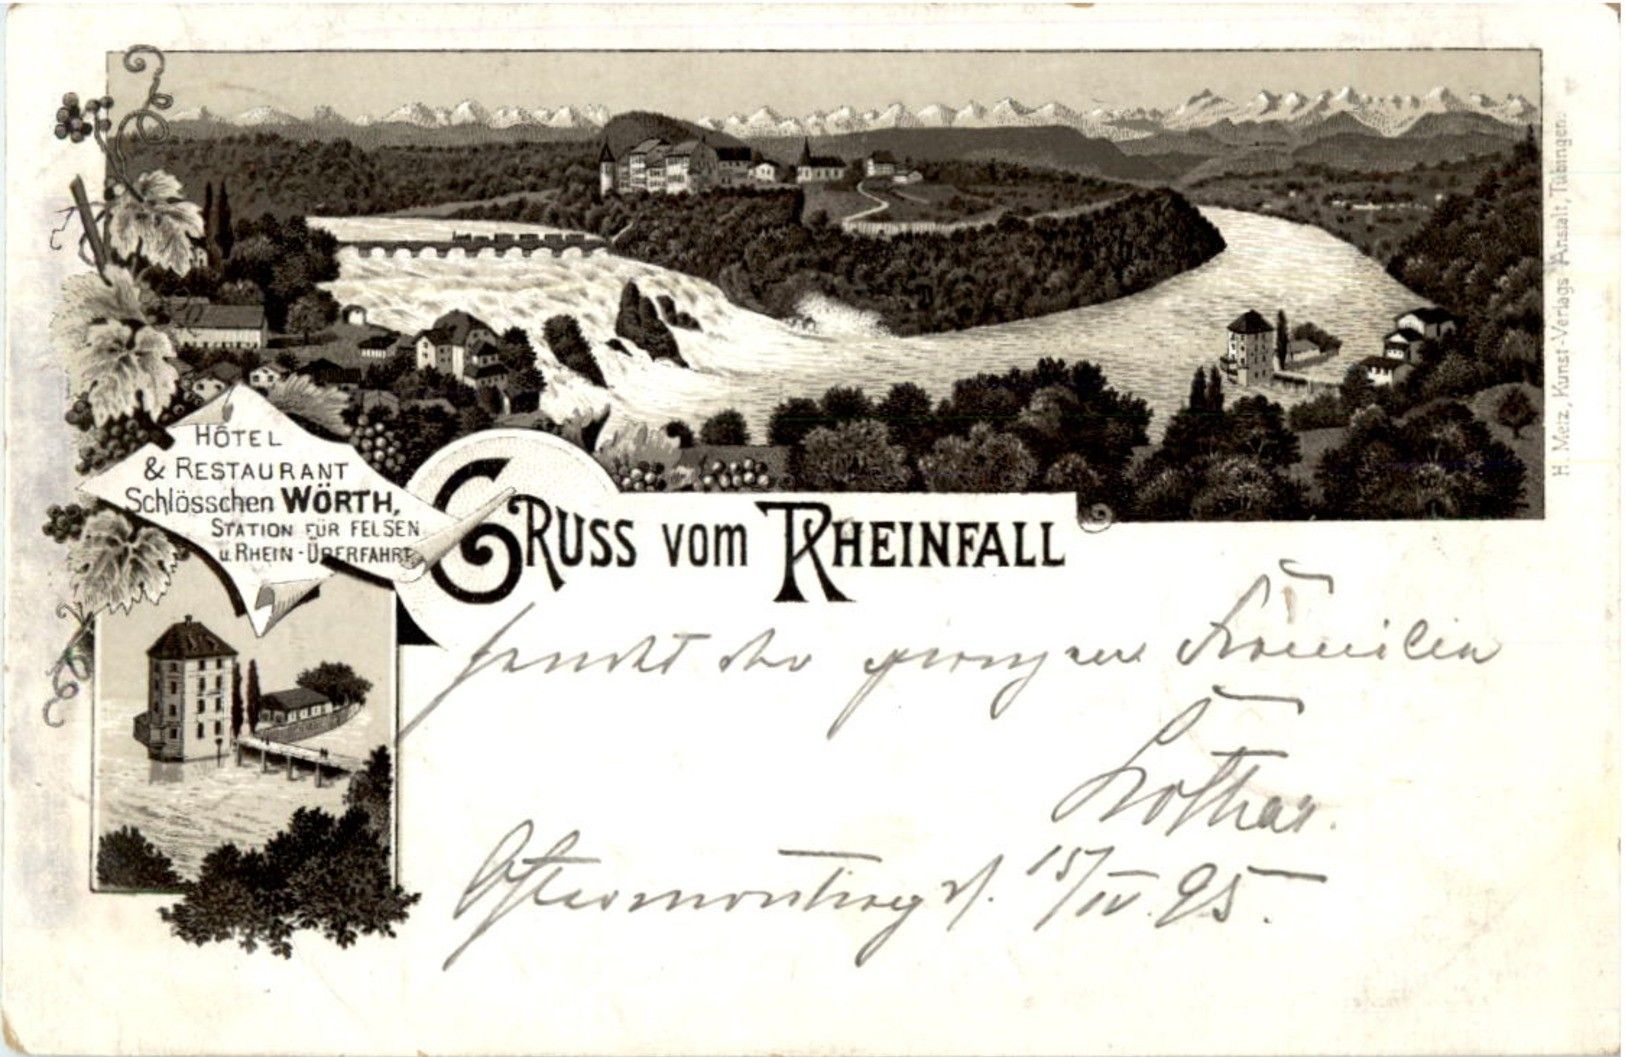 HÔTEL
& RESTAURANT
Schlösschen WÖRTH,
STATION FÜR FELSEN
u. RHEIN-ÜBERFAHRT
GRUSS VOM RHEINFALL
sendet der ganzen Familie
Lothar.
Ostermontag d. 15/IV. 95.
H. Metz, Kunst-Verlags-Anstalt, Tübingen.